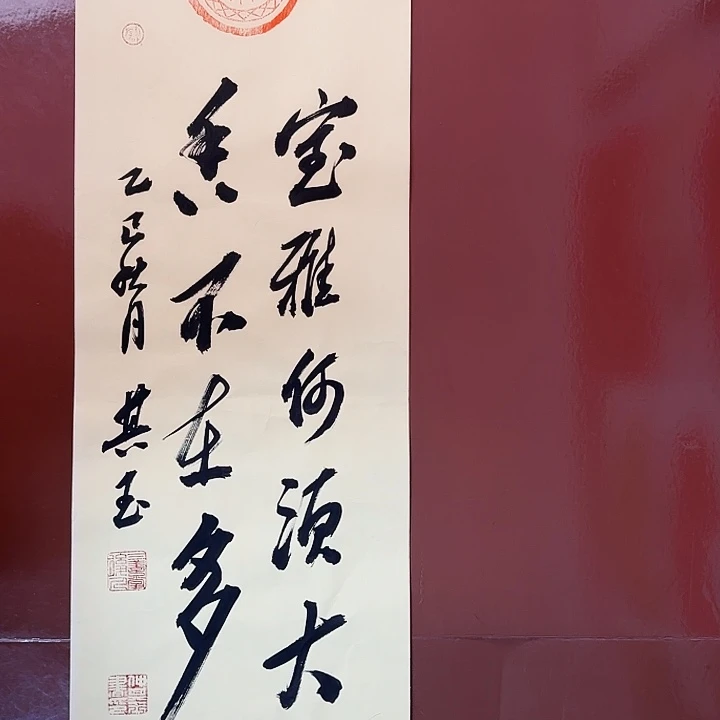 室雅何須大
香不在多
乙巳秋月 其玉